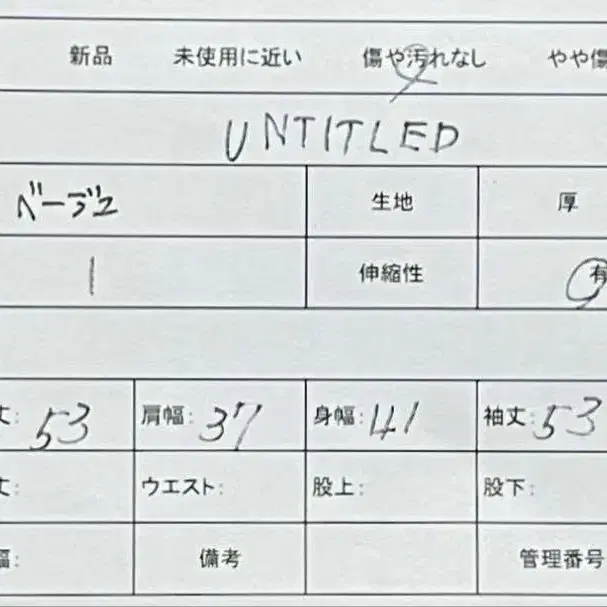 新品 未使用に近い 傷や汚れなし やや傷
UNTITLED
ベージュ 生地 厚
1 伸縮性 有
丈: 53 肩幅: 37 身幅: 41 袖丈: 53
丈: ウエスト: 股上: 股下:
幅: 備考 管理番号